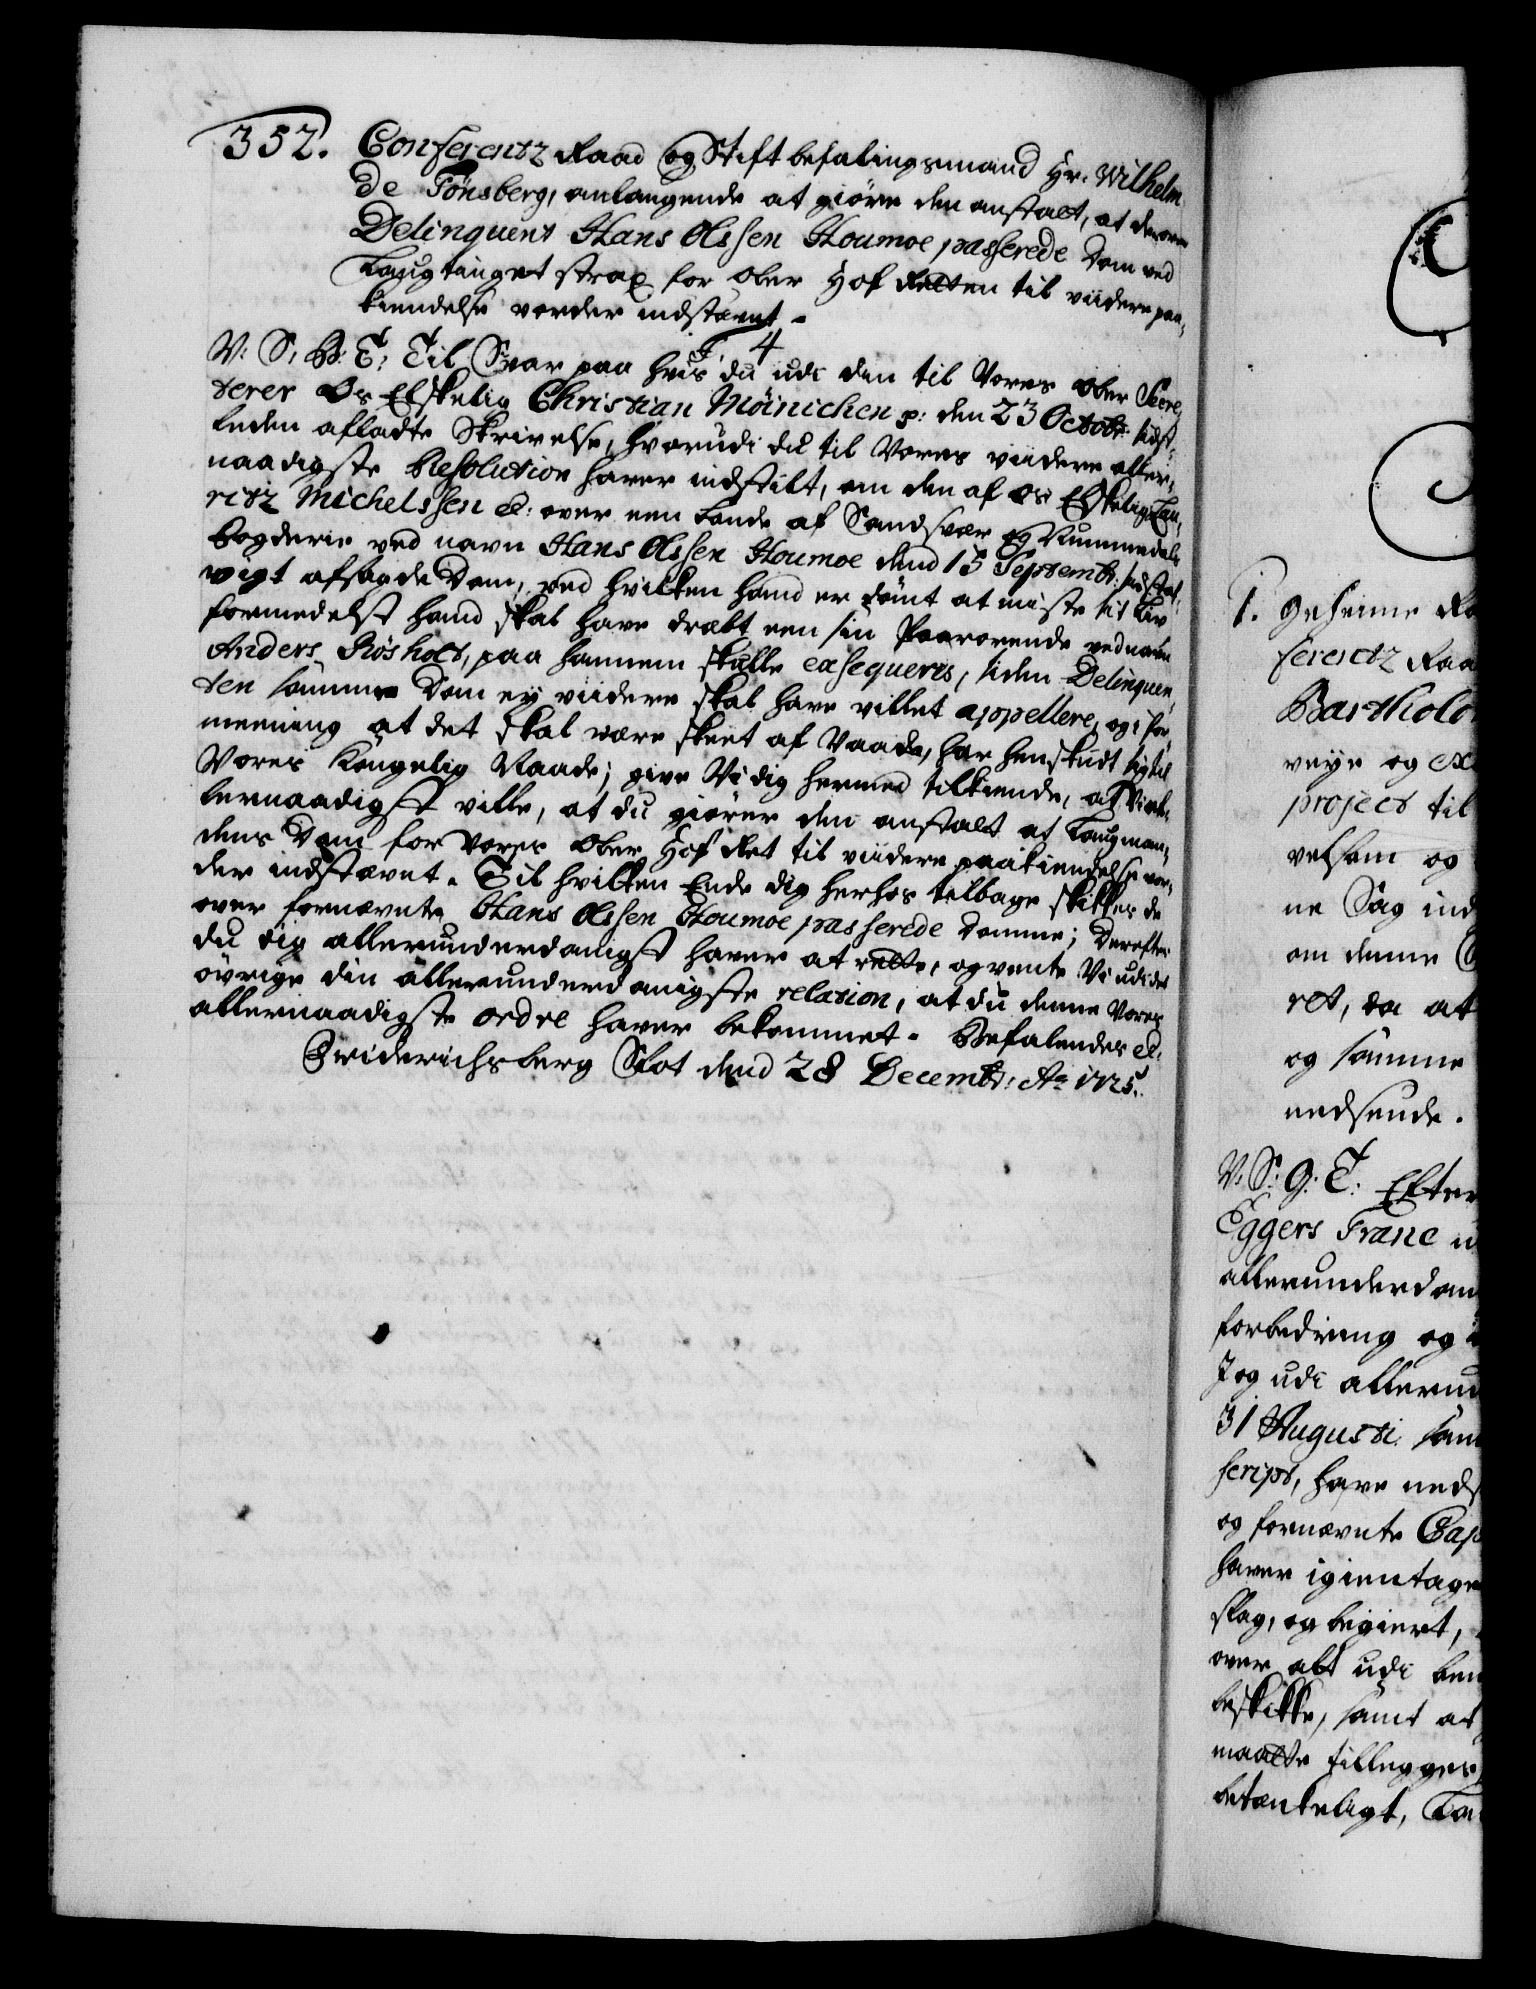 352. Conferentz Raad og Stiftbefalingsmand Hr. Wilhelm
de Tönsberg, anlangende at giöre den anstalt, at den over
Delinquent Hans Olssen Houmoe passerede Dom ved
Laugtinget strax for Ober Hof Retten til viidere paa-
kiendelse vorder indstævnt.
V: S: B: T: Til Svar paa hvis du udi den til Vores Ober Secre-
terer Os Elskelig Christian Möinichen p: den 23 Octobr: sidst-
leden afladte Skrivelse, hvorudi du til Vores viidere aller-
naadigste Resolution haver indstilt, om den af Os Elskelig Lau-
ritz Michelssen &: over een Bonde af Sandsvær og Nummedals
Fogderie ved navn Hans Olssen Houmoe dend 15 Septembr: sidst af-
vigt afsagde Dom, ved hvilken hand er dömt at miste sit Liv
formedelst hand skal have dræbt een sin Paarörende ved navn
Anders Rösholt, paa hannem skulle exseqveris, siden Delinqven-
ten samme Dom ey viidere skal have villet appellere, og i for-
meening at det skal være skeet af Vaade, har henskudt sig til
Vores Kongelig Naade; give Vi dig hermed tilkiende, at Vi al-
lernaadigst ville, at du giörer den anstalt at Laugman-
dens Dom for Vores Ober Hof Ret til viidere paakiendelse vor-
der indstævnt. Til hvilken Ende dig herhos tilbage skikkes de
over fornævnte Hans Olssen Houmoe passerede Domme; Derefter
du dig allerunderdanigst haver at rette, og vente Vi udi det
övrige din allerunderdanigste relation, at du denne Vores
allernaadigste ordre haver bekommet. Befalendes &:
Friderichsberg Slot dend 28 Decembr: Ao 1725.
1. Geheime Ra
ferentz Raa
Barthol
veye og ex
project til
velsom og
ne Sag ind
om denne
ret, da at
og samme
nedsende.
V: S: G: T: Efter
Eggers Franc
allerunderdan
forbedring og
Jog udi allerun
31 Augusti
script, have neds
og fornævnte Cap
haver igientage
slag, og begiert,
over alt udi ben
beskikke, samt at
maatte tillegges
betænkeligt,